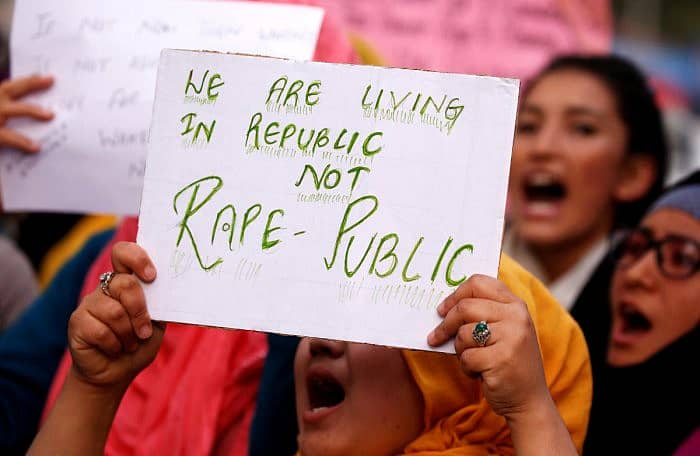 WE ARE LIVING
IN REPUBLIC
NOT
RAPE-PUBLIC
IF NOT NOW THEN WHEN!
IF NOT